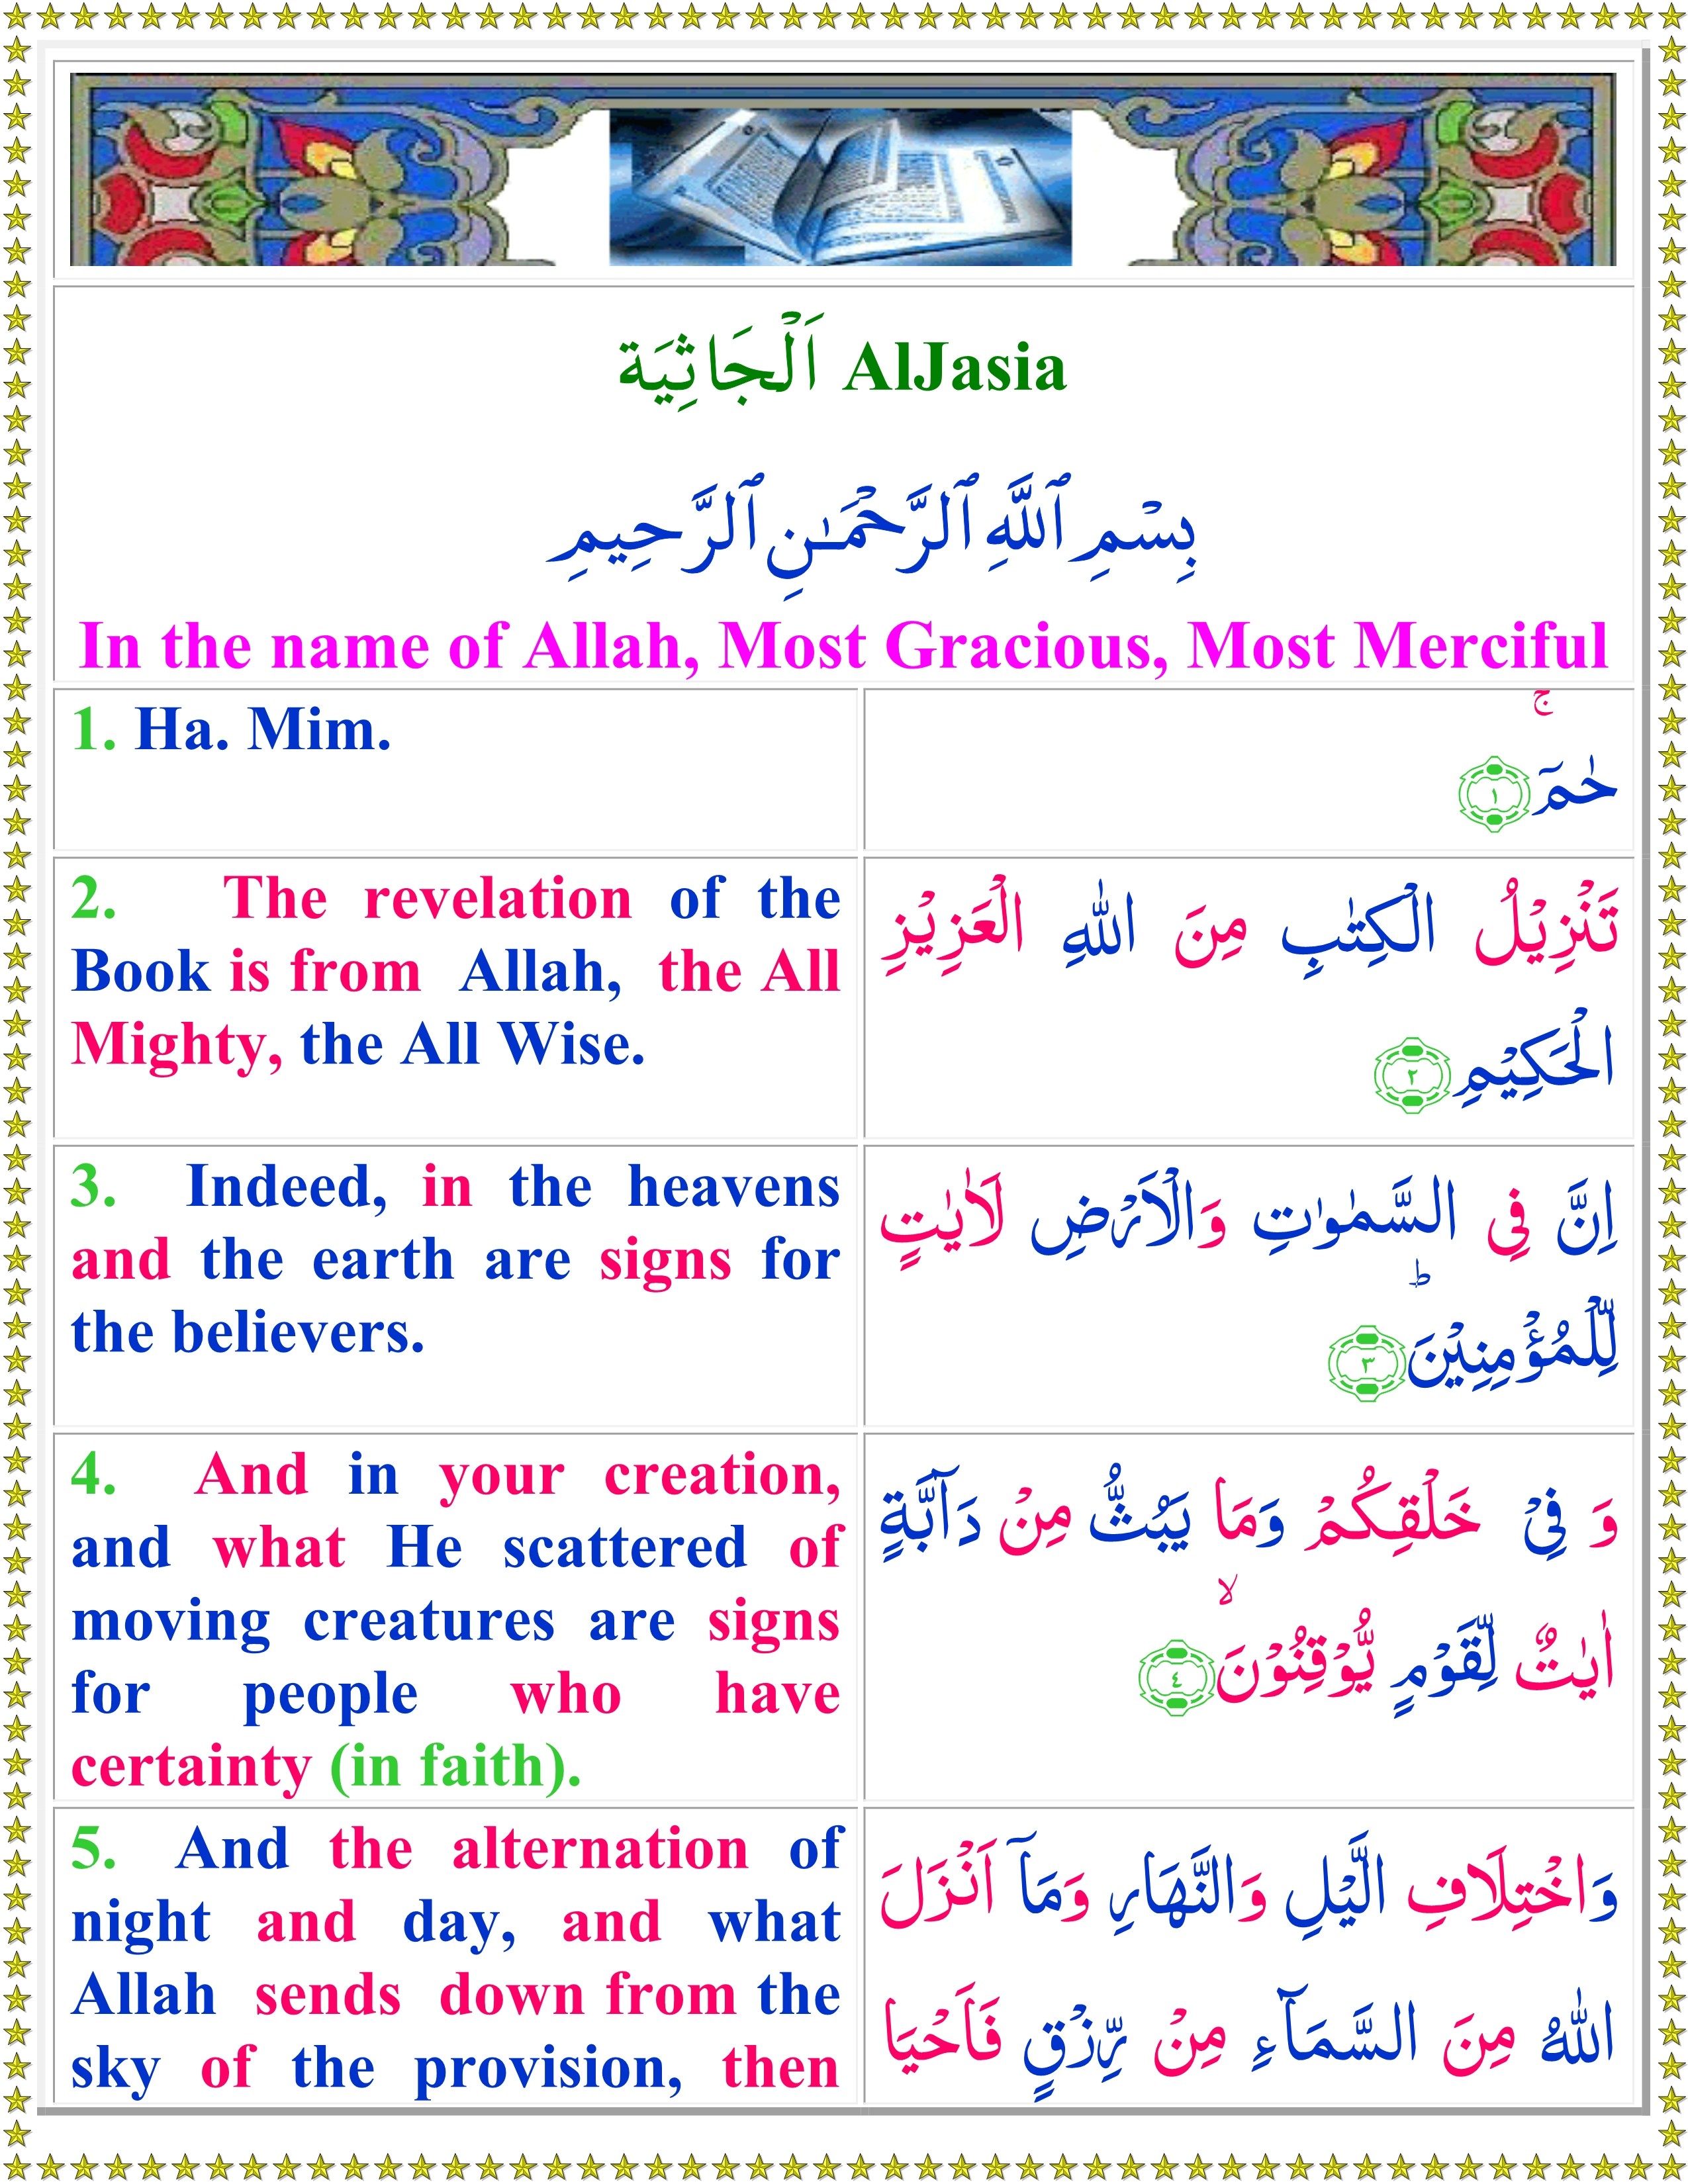 اَلْجَاثِيَة AlJasia
بِسْمِ ٱللَّهِ ٱلرَّحْمَـٰنِ ٱلرَّحِيمِ
In the name of Allah, Most Gracious, Most Merciful
1. Ha. Mim.
حٰمٓ ۚ ﴿۱﴾
2. The revelation of the
Book is from Allah, the All
Mighty, the All Wise.
تَنْزِيْلُ الْكِتٰبِ مِنَ اللّٰهِ الْعَزِيْزِ
الْحَكِيْمِ ﴿۲﴾
3. Indeed, in the heavens
and the earth are signs for
the believers.
اِنَّ فِى السَّمٰوٰتِ وَالْاَرْضِ لَاٰيٰتٍ
لِّلْمُؤْمِنِيْنَ ؕ ﴿۳﴾
4. And in your creation,
and what He scattered of
moving creatures are signs
for people who have
certainty (in faith).
وَ فِىْ خَلْقِكُمْ وَمَا يَبُثُّ مِنْ دَآبَّةٍ
اٰيٰتٌ لِّقَوْمٍ يُّوْقِنُوْنَ ۙ ﴿٤﴾
5. And the alternation of
night and day, and what
Allah sends down from the
sky of the provision, then
وَاخْتِلَافِ الَّيْلِ وَالنَّهَارِ وَمَاۤ اَنْزَلَ
اللّٰهُ مِنَ السَّمَآءِ مِنْ رِّزْقٍ فَاَحْيَا